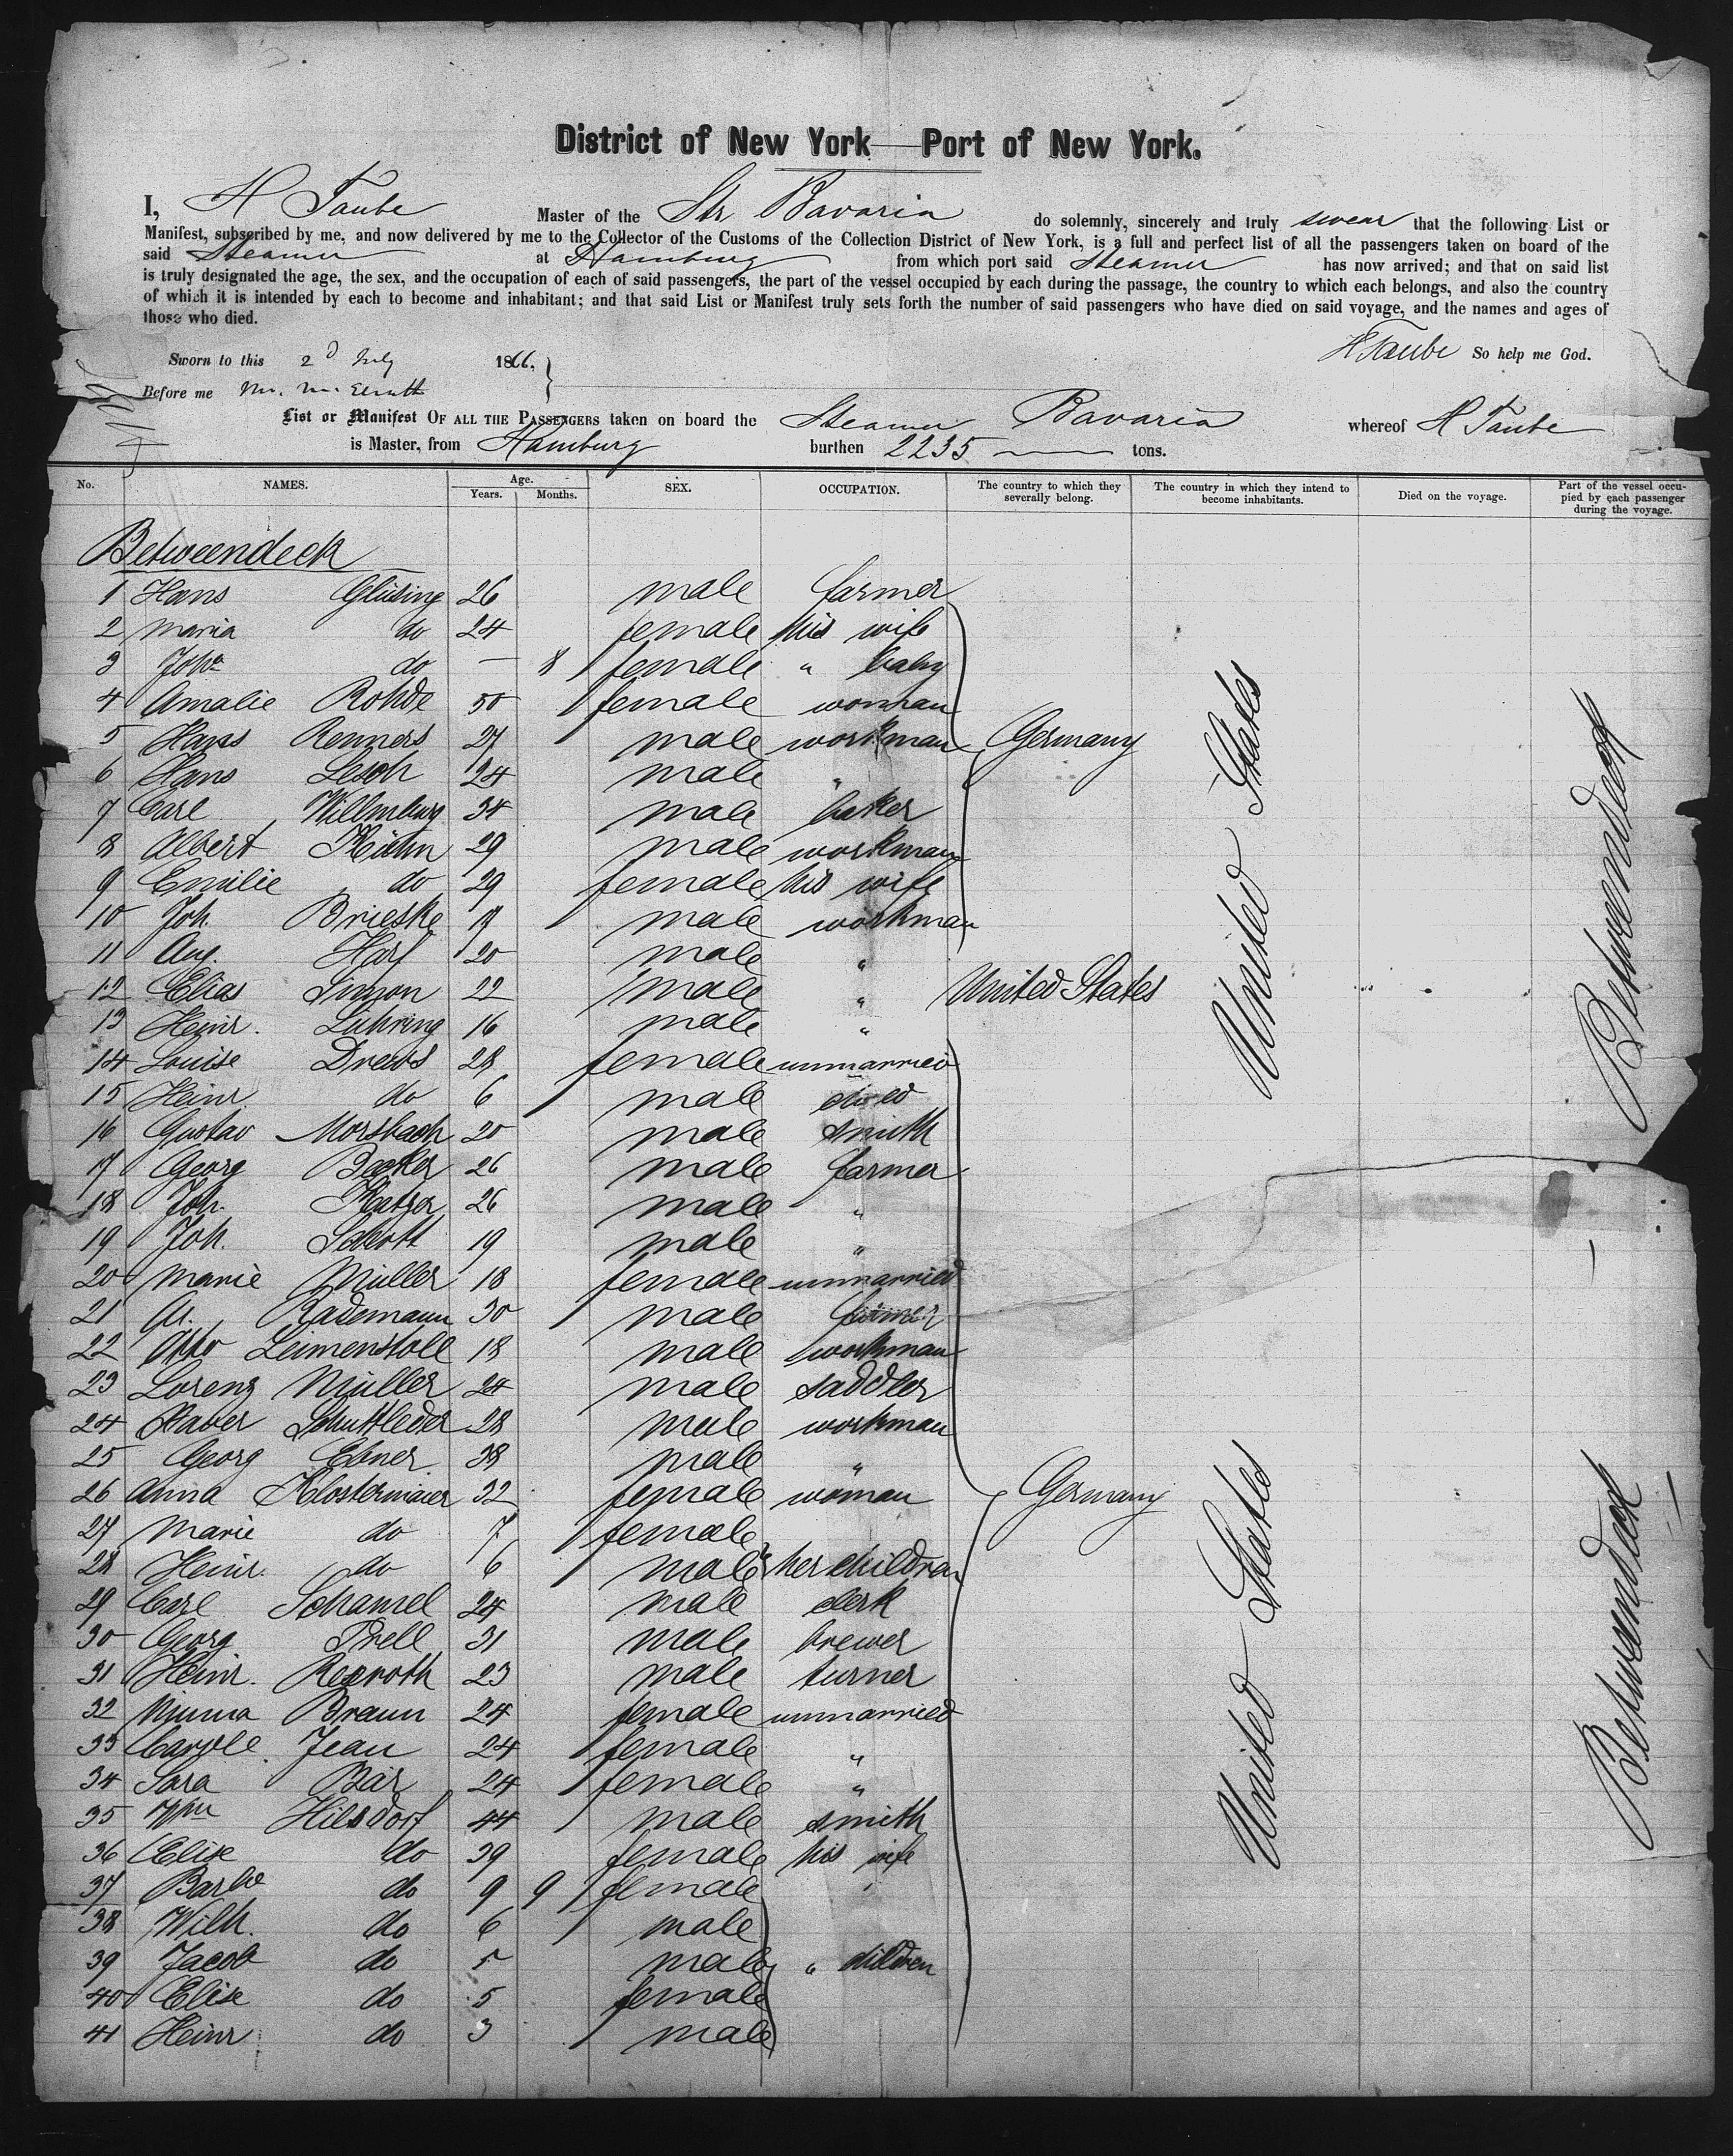 District of New York — Port of New York.
I, H Taube Master of the Str Bavaria do solemnly, sincerely and truly swear that the following List or
Manifest, subscribed by me, and now delivered by me to the Collector of the Customs of the Collection District of New York, is a full and perfect list of all the passengers taken on board of the
said Steamer at Hamburg from which port said Steamer has now arrived; and that on said list
is truly designated the age, the sex, and the occupation of each of said passengers, the part of the vessel occupied by each during the passage, the country to which each belongs, and also the country
of which it is intended by each to become and inhabitant; and that said List or Manifest truly sets forth the number of said passengers who have died on said voyage, and the names and ages of
those who died.
H Taube So help me God.
Sworn to this 2d July 1866,
Before me
List or Manifest OF ALL THE PASSENGERS taken on board the Steamer Bavaria whereof H Taube
is Master, from Hamburg burthen 2235 tons.
No. NAMES. Age. Years. Months. SEX. OCCUPATION. The country to which they severally belong. The country in which they intend to become inhabitants. Died on the voyage. Part of the vessel occupied by each passenger during the voyage.
Betweendeck
1 Hans Glüsing 26 male farmer
2 Maria do 24 female his wife
3 Joha do — 8 female " baby
4 Amalie Rohde 50 female woman
5 Hans Renners 27 male workman Germany
6 Hans Lesch 24 male "
7 Carl Willmburg 34 male baker
8 Albert Kühn 29 male workman
9 Emilie do 29 female his wife
10 Joh. Brieske 19 male workman
11 Aug. Harf 20 male "
12 Elias Simon 22 male " United States
13 Heinr. Lühring 16 male "
14 Louise Drews 28 female unmarried
15 Heinr. do 6 male child
16 Gustav Morsbach 20 male smith
17 Georg Becker 26 male farmer
18 Joh. 26 male "
19 Joh. Schott 19 male "
20 Marie Müller 18 female unmarried
21 Rademann 30 male farmer
22 Otto Leimenstoll 18 male workman
23 Lorenz Müller 24 male saddler
24 Xaver Schuttleder 28 male workman
25 Georg Ebner 38 male "
26 Anna Klostermaier 32 female woman Germany
27 Marie do 7 female
28 Heinr. do 6 male her children
29 Carl Schamel 24 male clerk
30 Georg Prell 31 male brewer
31 Heinr. Rexroth 23 male turner
32 Minna Braun 24 female unmarried
33 Jean 24 female "
34 Sara Bär 24 female "
35 Wm Hilsdorf 44 male smith
36 Elise do 39 female his wife
37 Barba do 9 9 female
38 Wilh. do 6 male
39 Jacob do 5 male " children
40 Elise do 5 female
41 Heinr do 3 male
United States
United States
Betweendeck
Betweendeck